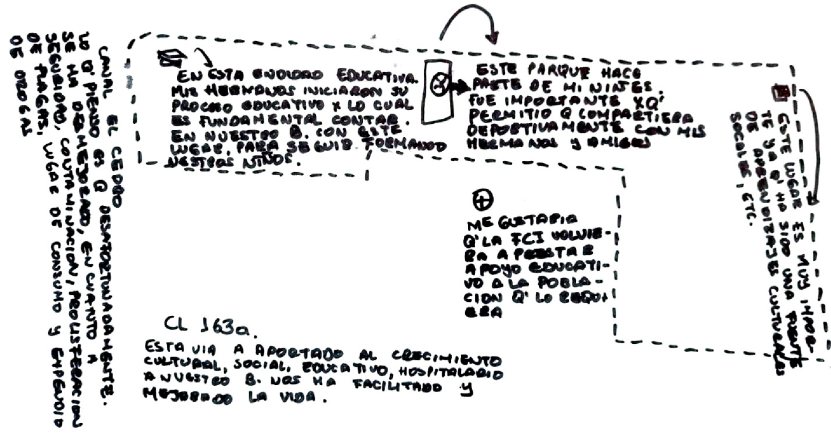 CANAL EL CEDRO
LO Q' PIENSO ES Q DESAFORTUNADAMENTE.
SE HA DESMEJORADO, EN CUANTO A
SEGURIDAD, CONTAMINACION, PROLISFERACION
DE PLAGAS, LUGAR DE CONSUMO Y EXPENDIO
DE DROGAS
EN ESTA ENDIDAD EDUCATIVA.
MIS HERMANOS INICIARON SU
PROCESO EDUCATIVO X LO CUAL
ES FUNDAMENTAL CONTAR.
EN NUESTRO B. CON ESTE
LUGAR, PARA SEGUIR FORMANDO
NESTROS NIÑOS.
ESTE PARQUE HACE
PARTE DE MI NIÑES.
FUE IMPORTANTE XQ'
PERMITIO Q COMPARTIERA
DEPORTIVAMENTE CON MIS
HERMANOS Y AMIGOS
ESTE LUGAR ES MUY IMPOR-
TE YA Q' HA SIDO UNA FUENTE
DE APRENDIZAJES CULTURALES
SOCIALES, ETC.
ME GUSTARIA
Q' LA FCI VOLVIE-
RA A PRESTAR
APOYO EDUCATI-
VO A LA POBLA-
CION Q' LO REQUI
ERA
CL 163a.
ESTA VIA A APORTADO AL CRECIMIENTO
CULTURAL, SOCIAL, EDUCATIVO, HOSPITALARIO
A NUESTRO B. NOS HA FACILITADO Y
MEJORADO LA VIDA.